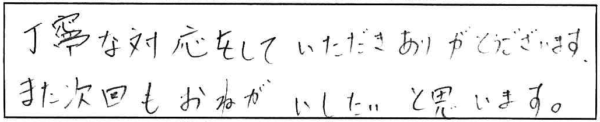 丁寧な対応をして いただきありがとうございます.
また次回も おねがいしたいと思います。